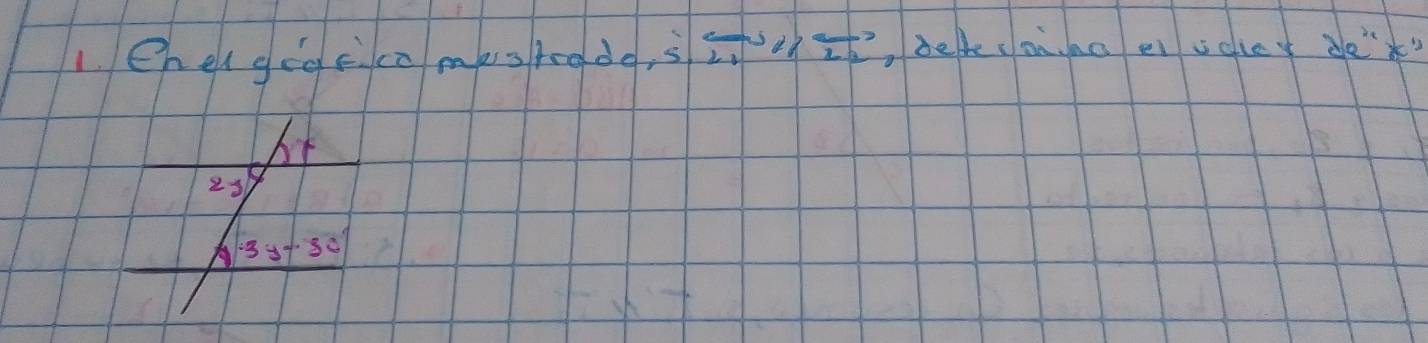 1. En el gráfico mostrado, si L1 // L2, determina el valor de "x"
x
2y
3y-30